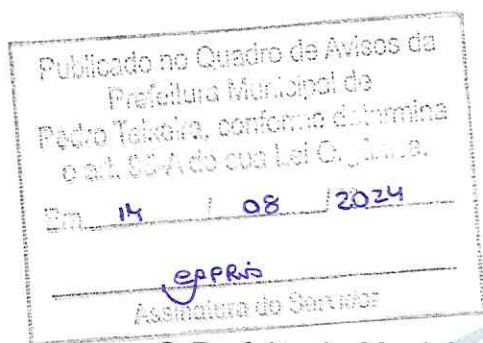 Publicado no Quadro de Avisos da
Prefeitura Municipal de
Pedro Teixeira, conforme determina
o art. da sua Lei
Em 14 / 08 / 2024
Assinatura do Servidor